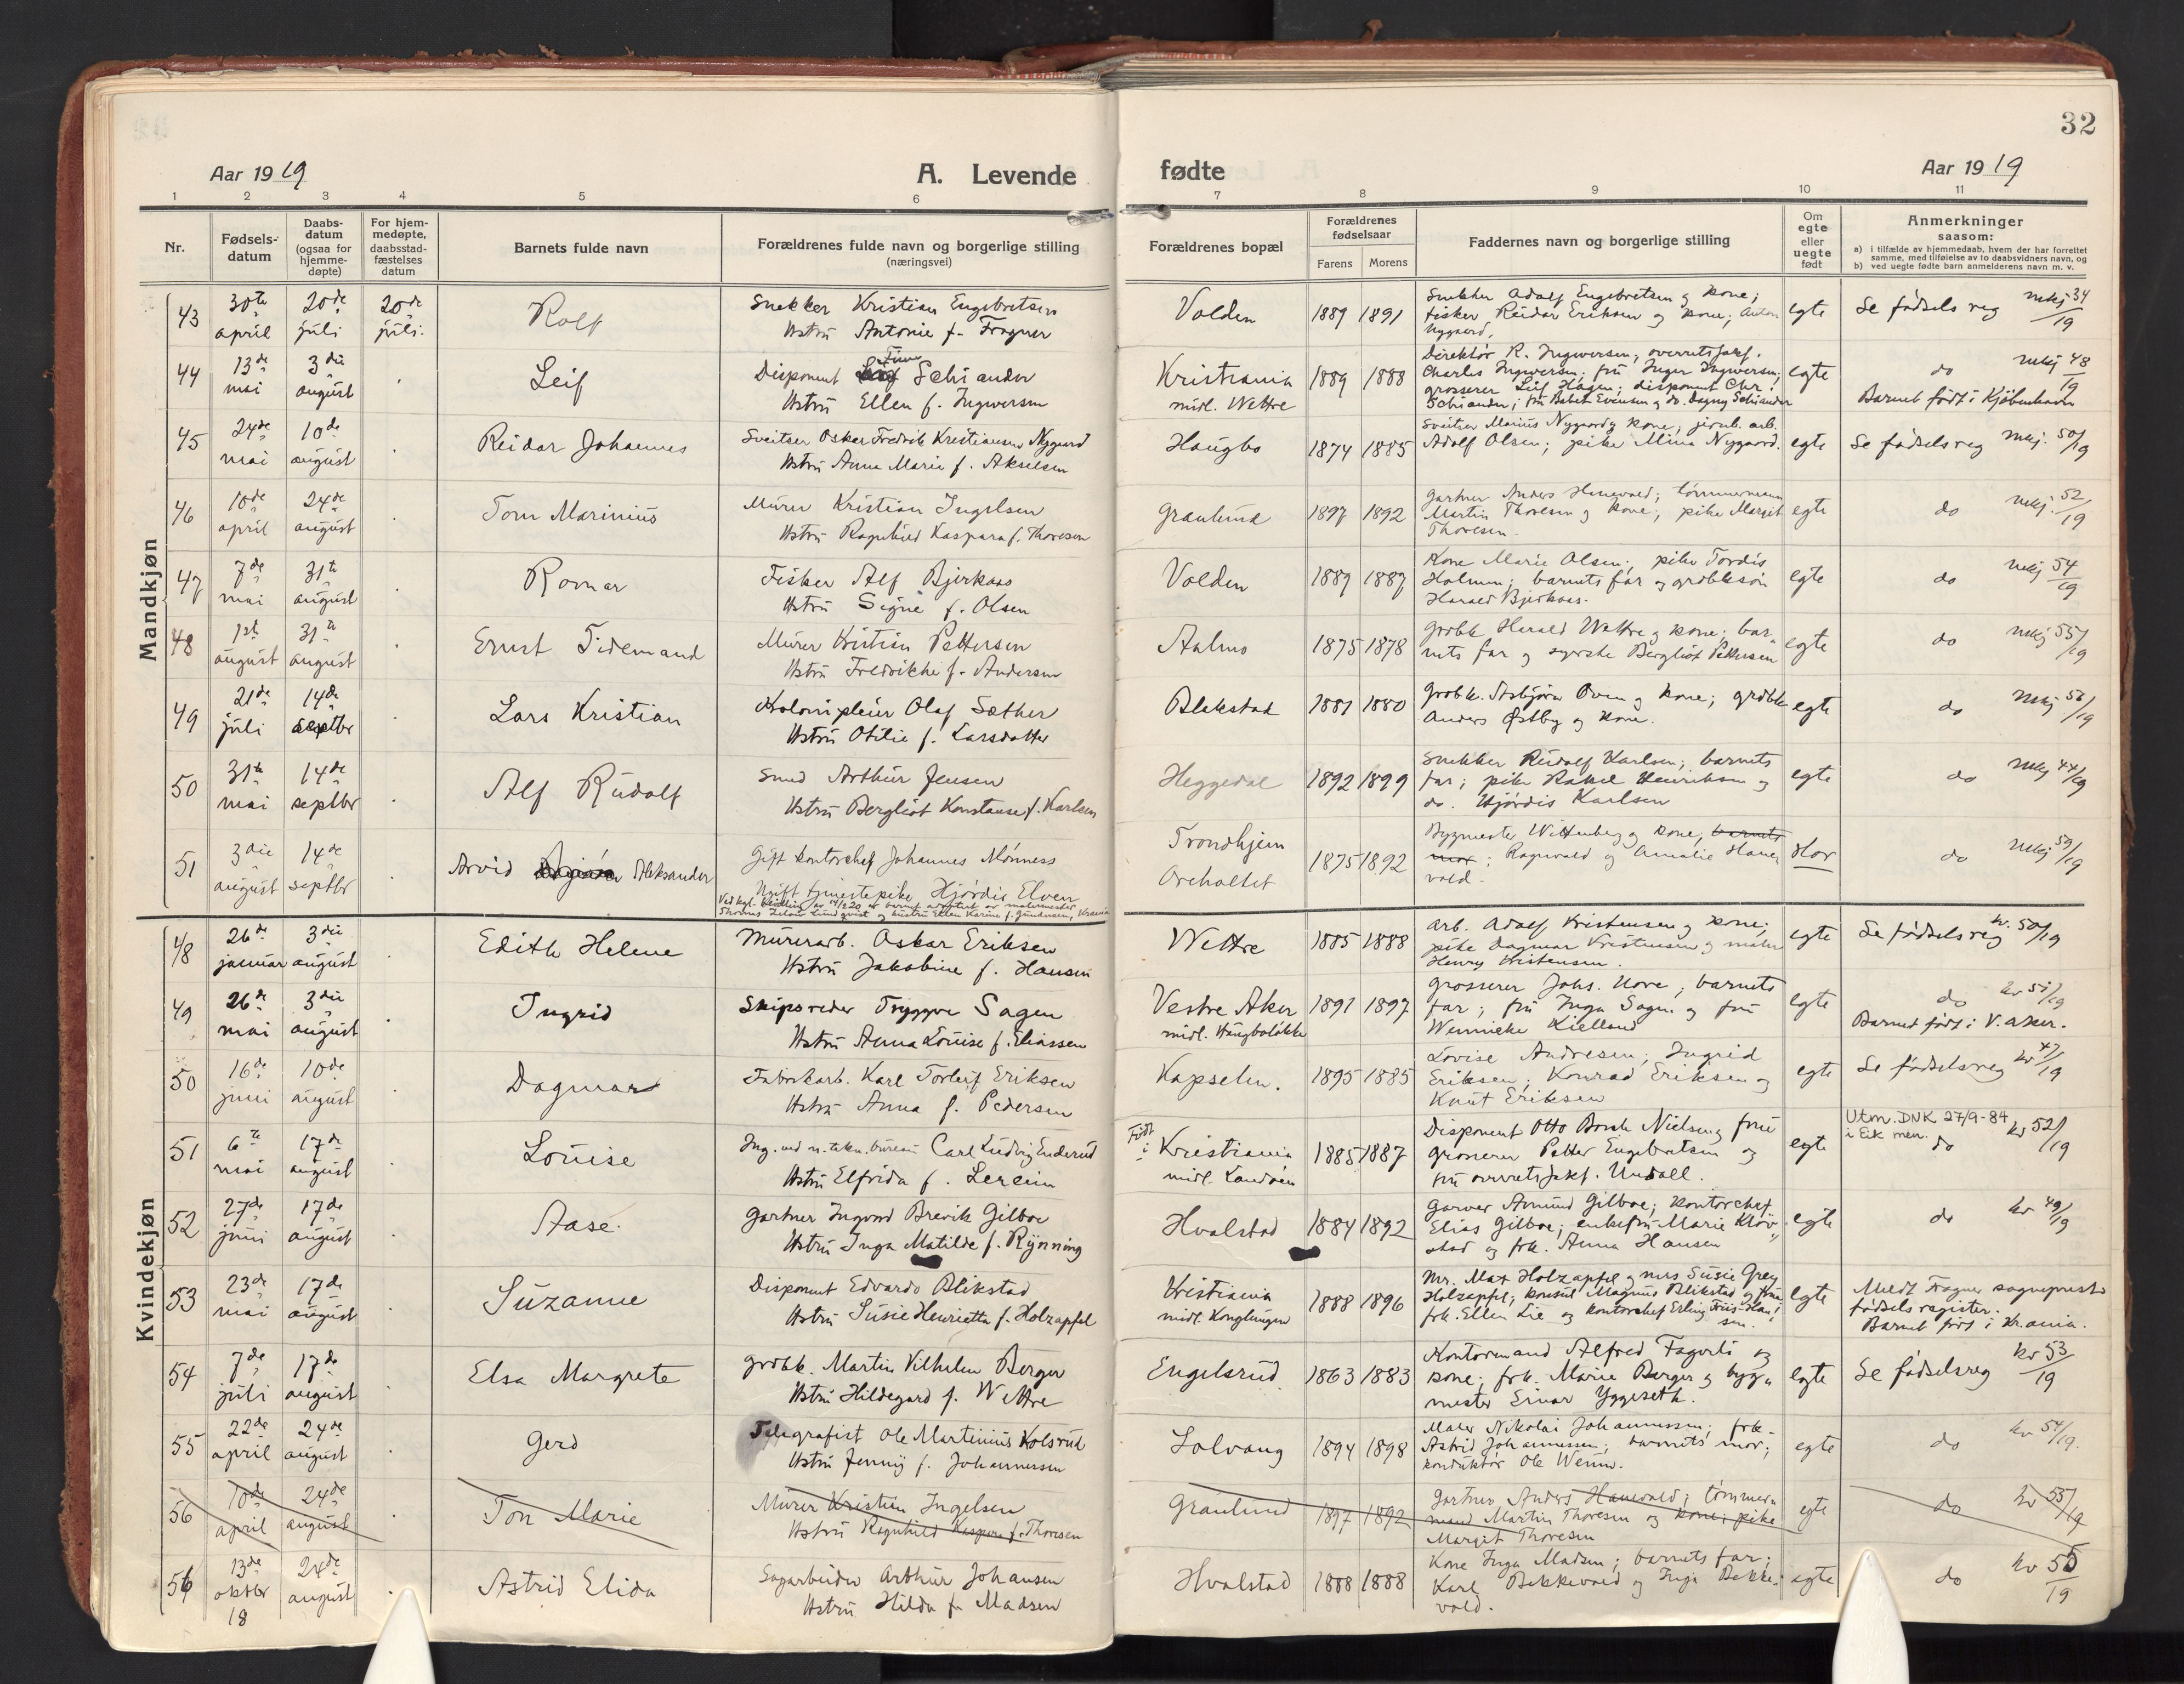 32
Aar 1919
A. Levende fødte
Aar 1919
1 2 3 4 5 6 7 8 9 10 11
Nr.
Fødsels-datum
Daabs-datum (ogsaa for hjemme-døpte)
For hjem-medøpte, daabsstad-fæstelses datum
Barnets fulde navn
Forældrenes fulde navn og borgerlige stilling (næringsvei)
Forældrenes bopæl
Forældrenes fødselsaar
Farens Morens
Faddernes navn og borgerlige stilling
Om egte eller uegte født
Anmerkninger saasom:
a) i tilfælde av hjemmedaab, hvem der har forrettet samme, med tilføielse av to daabsvidners navn, og
b) ved uegte fødte barn anmelderens navn m. v.
Mandkjøn
43 30te april 20de juli 20de juli. Rolf
Snekker Kristian Engebretsen
Hstru Antonie f. Fragner
Volden 1889 1891
Snekker Adolf Engebretsen og kone;
fisker Reidar Eriksen og kone; Anton
Nygaard,
egte Se fødselsreg mkj 34/19
44 13de mai 3die august Leif
Disponent Finn Schiander
Hstru Ellen f. Ingwersen
Kristiania
midl. Wettre
1889 1888
Direktør R. Ingwersen, overretssakf.
Charles Ingwersen; fru Inger Ingwersen;
grosserer Leif Hagen; disponent Chr.
Schiander; fru Babet Evensen og do. Dagny Schiander
egte do mkj 48/19
Barnet født i Kjøbenhavn
45 24de mai 10de august Reidar Johannes
Sveitser Oskar Fredrik Kristiansen Nygaard
Hstru Anna Marie f. Akselsen
Haugbo 1874 1885
Sveitser Marius Nygaard og kone; jernb. arb.
Adolf Olsen; pike Mina Nygaard.
egte Se fødselsreg mkj. 50/19
46 10de april 24de august Tom Marinius
Murer Kristian Ingelsen
Hstru Ragnhild Kaspara f. Thoresen
Granlund 1897 1892
Gartner Anders Hanevold; tømmermann
Martin Thoresen og kone; pike Margit
Thoresen.
egte do mkj. 52/19
47 7de mai 31te august Romar
Fisker Alf Bjerkaas
Hstru Signe f. Olsen
Volden 1889 1887
Kone Marie Olsen; pike Tordis
Holmen; barnets far og grdbr.søn
Harald Bjerkaas.
egte do mkj 54/19
48 1ste august 31te august Ernst Tidemand
Murer Kristian Pettersen
Hstru Fredrikke f. Andersen
Aalmo 1875 1878
Grdbr. Harald Wettre og kone; bar-
nets far og syerske Bergliot Pettersen
egte do mkj 55/19
49 21de juli 14de septbr Lars Kristian
Olaf Sæther
Hstru Otilie f. Larsdatter
Blekstad 1881 1880
Grdbr. Asbjørn Oven og kone; grdbr.
Anders Østby og kone.
egte do mkj 56/19
50 31te mai 14de septbr Alf Rudolf
Smed Arthur Jensen
Hstru Bergliot Konstanse f. Karlsen
Heggedal 1892 1899
Snekker Rudolf Karlsen; barnets
far; pike Rakel Henriksen og
do. Hjørdis Karlsen
egte do mkj 44/19
51 3die august 14de septbr Arvid Aleksander
Gift kontorchef Johannes Mønness
Ugift tjenestepike Hjørdis Elven
Trondhjem
Oreholtet
1875 1892
Bygmester Wittenberg og kone, barnets
mor; Ragnvald og Amalie Hane-
vold.
Hor do mkj 59/19
Kvindekjøn
48 26de januar 3die august Edith Helene
Murerarb. Oskar Eriksen
Hstru Jakobine f. Hansen
Wettre 1885 1888
Arb. Adolf Kristensen og kone;
pike Dagmar Kristensen og maler
Henry Kristensen.
egte Se fødselsreg kv. 50/19
49 26de mai 3die august Ingrid
Skipsreder Tryggve Sagen
Hstru Anna Louise f. Eliassen
Vestre Aker
midl. Haugboløkke
1891 1897
Grosserer Johs. Hove; barnets
far; fru Inga Sagen og fru
Wennicke Kielland
egte do kv 51/19
Barnet født i V. Aker.
50 16de juni 10de august Dagmar
Fabrikarb. Karl Torleif Eriksen
Hstru Anna f. Pedersen
Kapselen. 1895 1885
Lovise Andresen; Ingrid
Eriksen; Konrad Eriksen og
Knut Eriksen
egte Se fødselsreg kv 47/19
51 6te mai 17de august Louise
Ing. ved n. tekn. bureau Carl Ludvig Enderud
Hstru Elfrida f. Lereim
Født i Kristiania
midl. Landøen
1885 1887
Disponent Otto Borch Nielsen og frue
grosserer Petter Engebretsen og
fru overretssakf. Undall.
egte
Utm. DNK 27/9-84
i Eik men.
do kv 52/19
52 27de juni 17de august Aase.
Gartner Ingvord Brevik Gilboe
Hstru Inga Matilde f. Rynning
Hvalstad 1884 1892
Garver Amund Gilboe; kontorchef
Elias Gilboe; enkefru Marie Kløv-
stad og frk. Anna Hansen
egte do kv 49/19
53 23de mai 17de august Suzanne
Disponent Edvardo Blikstad
Hstru Susie Henrietta f. Holzapfel
Kristiania
midl. Konglungen
1888 1896
Mr. Max Holzapfel og mrs Susie Grey
Holzapfel; konsul Magnus Blikstad og frue
frk. Ellen Lie og kontorchef Erling Friis-Han-
sen.
egte
Meldt Fragner sogneprests
fødselsregister.
Barnet født i Kr.ania.
54 7de juli 17de august Elsa Margrete
Grdbr. Martin Vilhelm Berger
Hstru Hildegard f. Wettre
Engelsrud 1863 1883
Kontormand Alfred Fagerli og
kone; frk. Marie Berger og byg-
mester Einar Yggeseth.
egte Se fødselsreg kv 53/19
55 22de april 24de august Gerd
Telegrafist Ole Martinius Kolsrud
Hstru Jenny f. Johannessen
Solvang 1894 1898
Maler Nikolai Johannessen; frk.
Astrid Johannessen; barnets mor;
konduktør Ole Wenno.
egte do kv 54/19.
56 10de april 24de august Ton Marie
Murer Kristian Ingelsen
Hstru Ragnhild Kaspara f. Thoresen
Granlund 1897 1892
Gartner Anders Hanevold; tømmer-
mand Martin Thoresen og kone; pike
Margit Thoresen
egte do kv 55/19
56 13de oktbr 18 24de august Astrid Elida
Sagarbeider Arthur Johansen
Hstru Hilda f. Madsen
Hvalstad 1888 1888
Kone Inga Madsen; barnets far;
Karl Bekkevold og Inga Bekke-
vold.
egte do kv 55/19